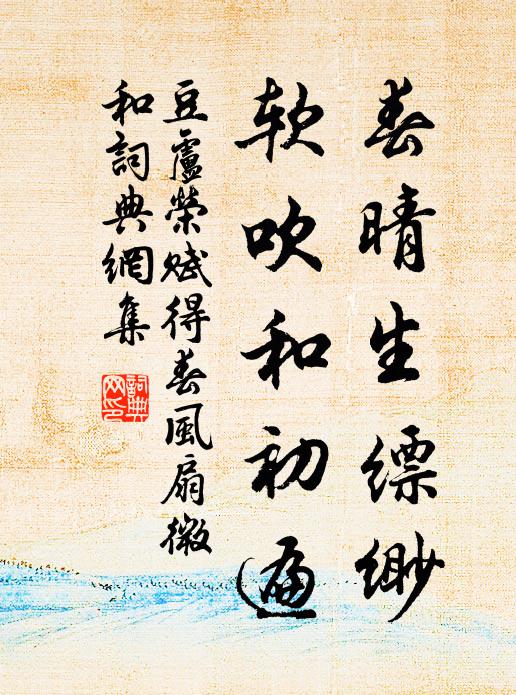 春晴生缥緲
软吹和初遍
豆盧榮赋得春風扇微
和詞典網集
詞典
网印